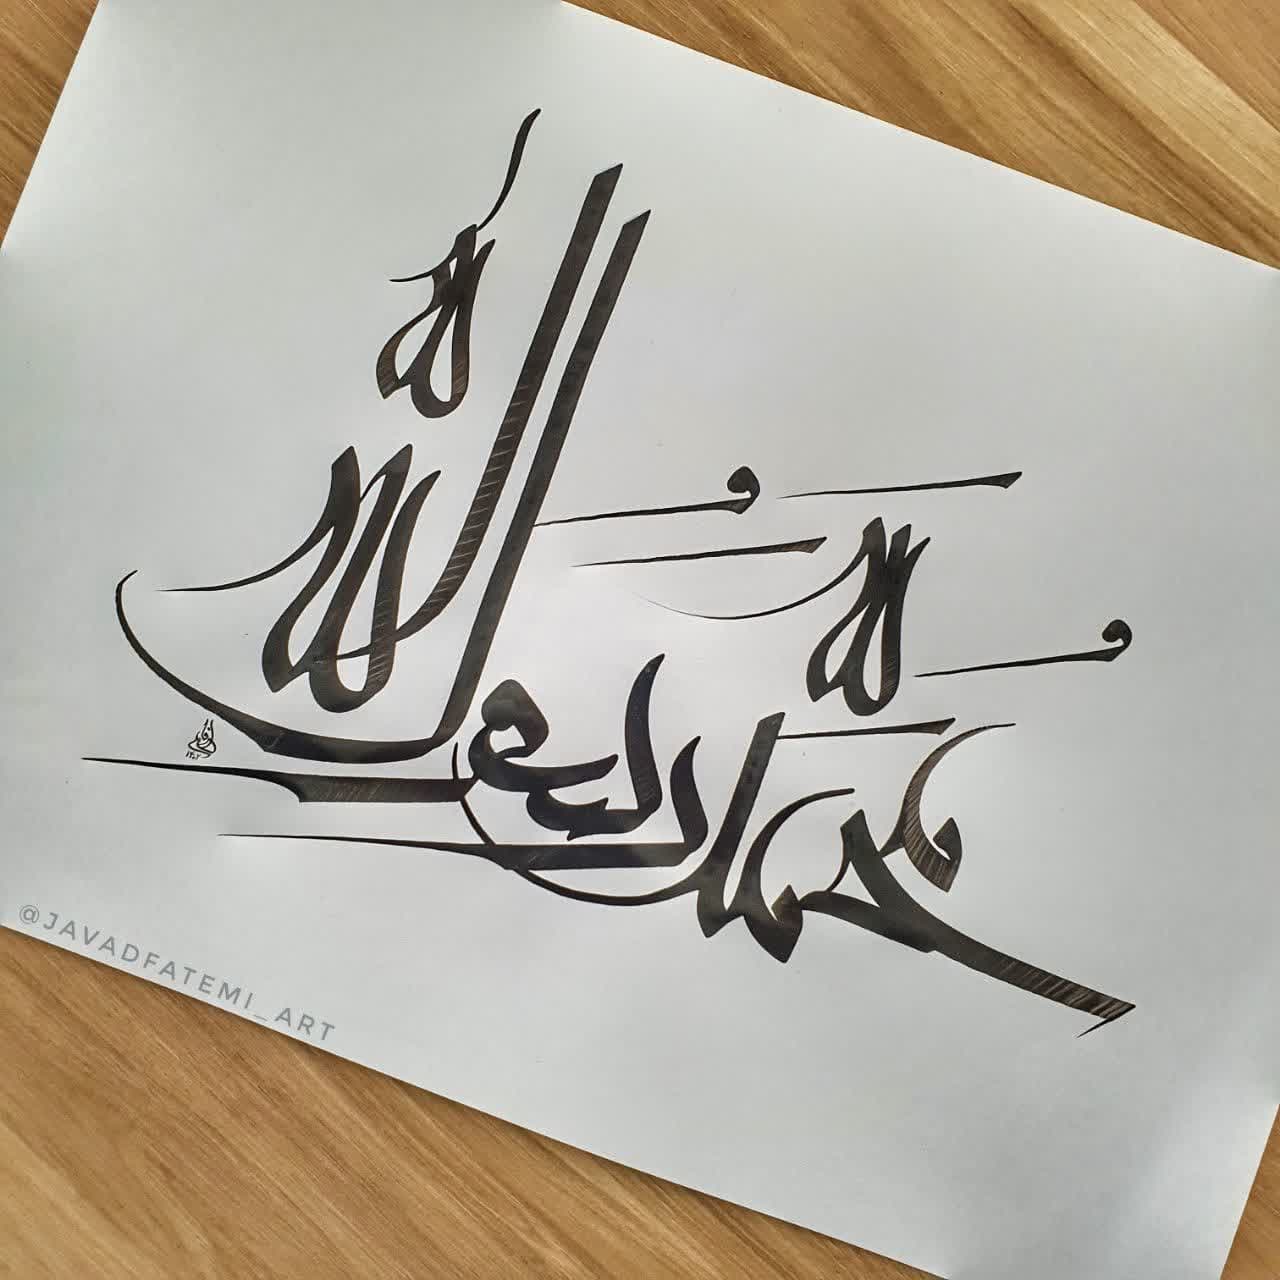 مُحَمَّدٌ رَسُولُ اللَّه
@JAVADFATEMI_ART